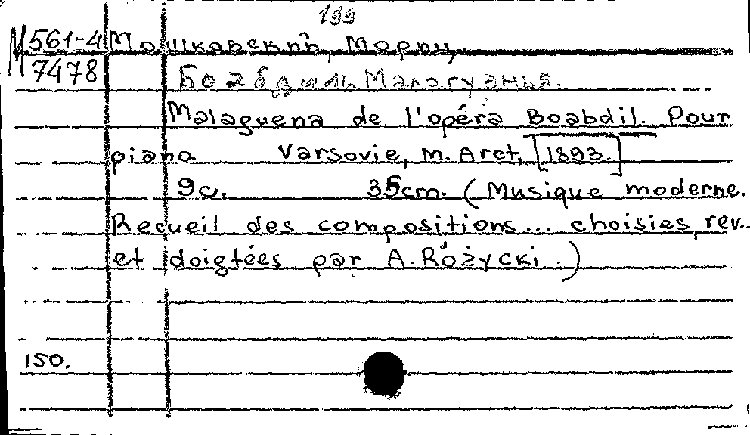 199
М 561-4 Мошковский, Мориц
7478 Боабдиль Малагуэнья.
Malaguena de l'opéra Boabdil. Pour
piano Varsovie, M. Arct, [1893.]
9c. 35cm. (Musique moderne.
Recueil des compositions... choisies, rev.
et doigtées par A. Różycki.)
150.